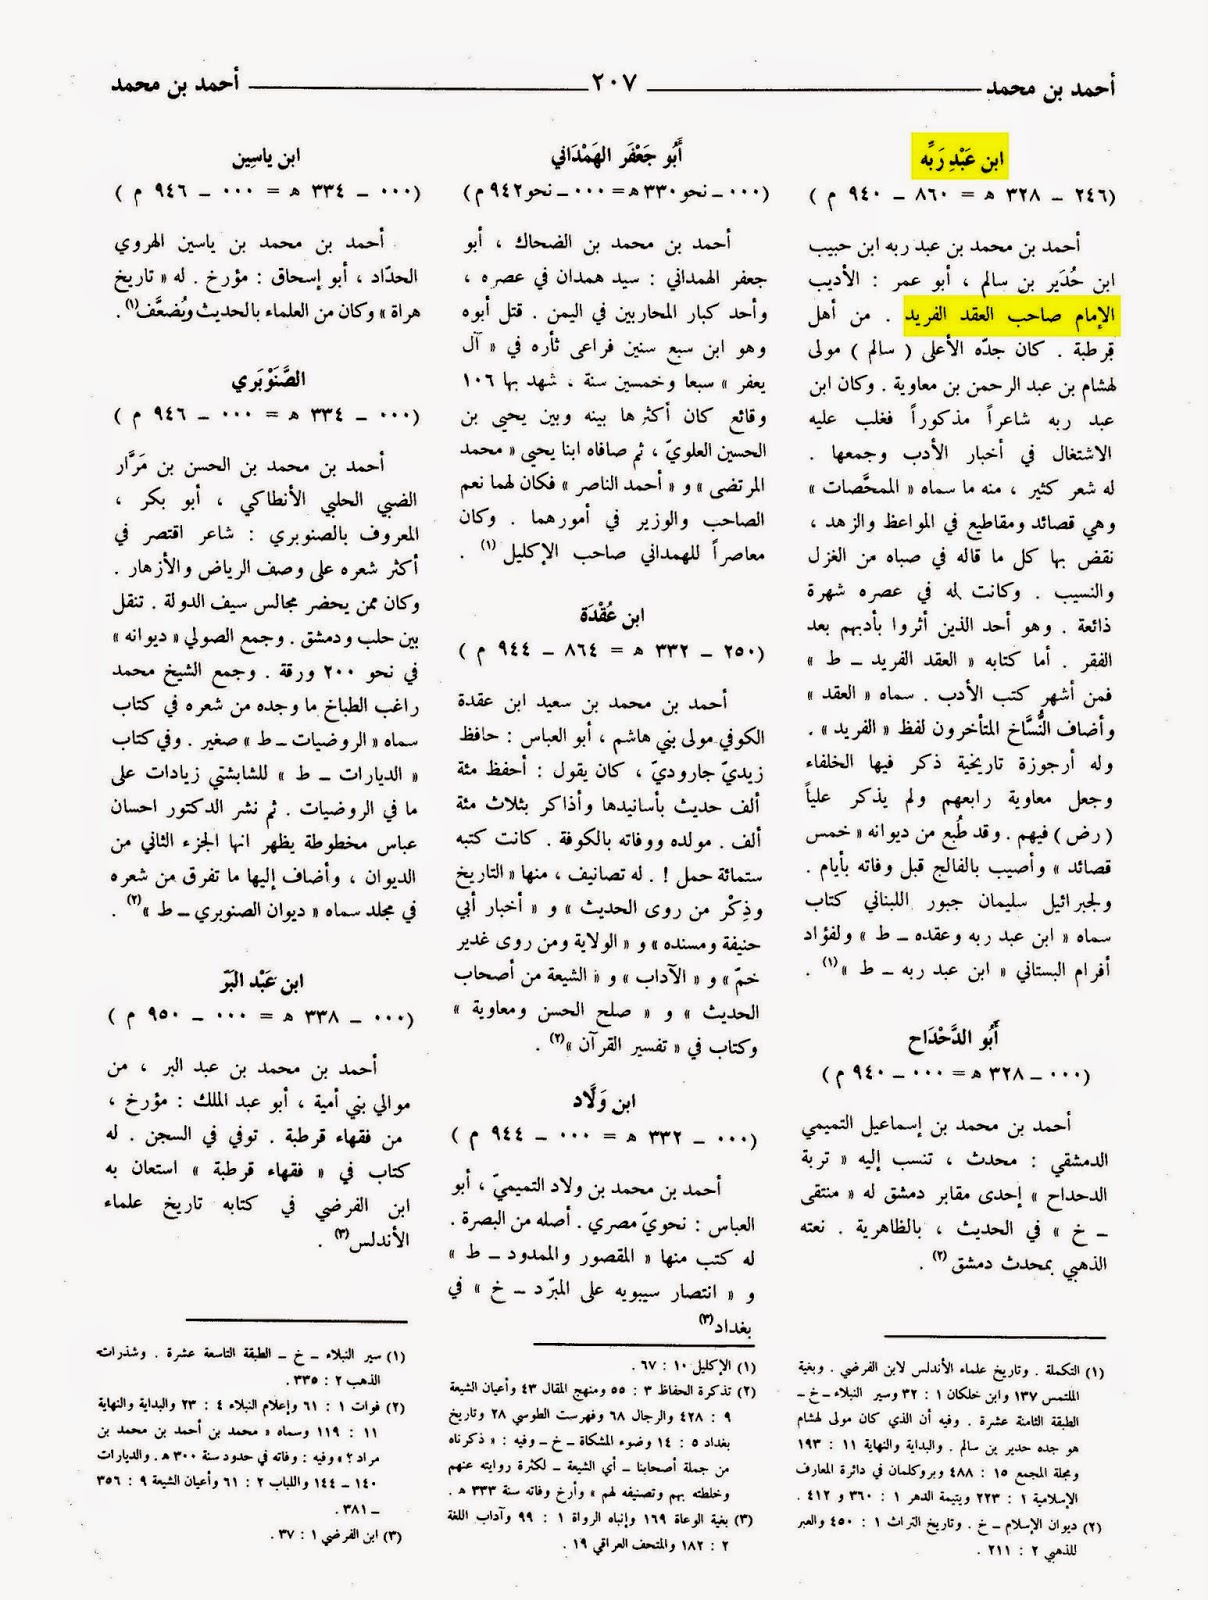 أحمد بن محمد ٢٠٧ أحمد بن محمد
ابن عَبْدِ رَبِّه
(٢٤٦ ـ ٣٢٨ ه = ٨٦٠ ـ ٩٤٠ م )
أحمد بن محمد بن عبد ربه ابن حبيب
ابن حُدَير بن سالم ، أبو عمر : الأديب
الإمام صاحب العقد الفريد . من أهل
قرطبة . كان جدّه الأعلى ( سالم ) مولى
لهشام بن عبد الرحمن بن معاوية . وكان ابن
عبد ربه شاعراً مذكوراً فغلب عليه
الاشتغال في أخبار الأدب وجمعها .
له شعر كثير ، منه ما سماه « الممحَّصات »
وهي قصائد ومقاطيع في المواعظ والزهد ،
نقض بها كل ما قاله في صباه من الغزل
والنسيب . وكانت له في عصره شهرة
ذائعة . وهو أحد الذين أثروا بأدبهم بعد
الفقر . أما كتابه « العقد الفريد ـ ط »
فمن أشهر كتب الأدب . سماه « العقد »
وأضاف النُّسَّاخ المتأخرون لفظ « الفريد » .
وله أرجوزة تاريخية ذكر فيها الخلفاء
وجعل معاوية رابعهم ولم يذكر علياً
( رض ) فيهم . وقد طُبع من ديوانه « خمس
قصائد » وأصيب بالفالج قبل وفاته بأيام .
ولجبرائيل سليمان جبور اللبناني كتاب
سماه « ابن عبد ربه وعقده ـ ط » ولفؤاد
أفرام البستاني « ابن عبد ربه ـ ط »(١) .
أَبُو الدَّحْدَاح
(٠٠٠ ـ ٣٢٨ ه = ٠٠٠ ـ ٩٤٠ م )
أحمد بن محمد بن إسماعيل التميمي
الدمشقي : محدث ، تنسب إليه « تربة
الدحداح » إحدى مقابر دمشق له « منتقى
ـ خ » في الحديث ، بالظاهرية . نعته
الذهبي بمحدث دمشق (٢) .
(١) التكملة . وتاريخ علماء الأندلس لابن الفرضي . وبغية
الملتمس ١٣٧ وابن خلكان ١ : ٣٢ وسير النبلاء ـ خ ـ
الطبقة الثامنة عشرة . وفيه أن الذي كان مولى لهشام
هو جده حدير بن سالم . والبداية والنهاية ١١ : ١٩٣
ومجلة المجمع ١٥ : ٤٨٨ وبروكلمان في دائرة المعارف
الإسلامية ١ : ٢٢٣ ويتيمة الدهر ١ : ٣٦٠ و ٤١٢ .
(٢) ديوان الإسلام ـ خ . وتاريخ التراث ١ : ٤٥٠ والعبر
للذهبي ٢ : ٢١١ .
أَبُو جَعْفَر الهَمْدَاني
(٠٠٠ ـ نحو ٣٣٠ ه = ٠٠٠ ـ نحو ٩٤٢ م)
أحمد بن محمد بن الضحاك ، أبو
جعفر الهمداني : سيد همدان في عصره ،
وأحد كبار المحاربين في اليمن . قتل أبوه
وهو ابن سبع سنين فراعى ثأره في « آل
يعفر » سبعا وخمسين سنة ، شهد بها ١٠٦
وقائع كان أكثرها بينه وبين يحيى بن
الحسين العلويّ ، ثم صافاه ابنا يحيى « محمد
المرتضى » و « أحمد الناصر » فكان لهما نعم
الصاحب والوزير في أمورهما . وكان
معاصراً للهمداني صاحب الإكليل (١) .
ابن عُقْدَة
(٢٥٠ ـ ٣٣٢ ه = ٨٦٤ ـ ٩٤٤ م )
أحمد بن محمد بن سعيد ابن عقدة
الكوفي مولى بني هاشم ، أبو العباس : حافظ
زيديّ جاروديّ ، كان يقول : أحفظ مئة
ألف حديث بأسانيدها وأذاكر بثلاث مئة
ألف . مولده ووفاته بالكوفة . كانت كتبه
ستمائة حمل ! . له تصانيف ، منها « التاريخ
وذِكْر من روى الحديث » و « أخبار أبي
حنيفة ومسنده » و « الولاية ومن روى غدير
خمّ » و « الآداب » و « الشيعة من أصحاب
الحديث » و « صلح الحسن ومعاوية »
وكتاب في « تفسير القرآن »(٢) .
ابن وَلَّاد
(٠٠٠ ـ ٣٣٢ ه = ٠٠٠ ـ ٩٤٤ م )
أحمد بن محمد بن ولاد التميميّ ، أبو
العباس : نحويّ مصري . أصله من البصرة .
له كتب منها « المقصور والممدود ـ ط »
و « انتصار سيبويه على المبرّد ـ خ » في
بغداد(٣)
(١) الإكليل ١٠ : ٦٧ .
(٢) تذكرة الحفاظ ٣ : ٥٥ ومنهج المقال ٤٣ وأعيان الشيعة
٩ : ٤٢٨ والرجال ٦٨ وفهرست الطوسي ٢٨ وتاريخ
بغداد ٥ : ١٤ وضوء المشكاة ـ خ ـ وفيه : « ذكرناه
من جملة أصحابنا ـ أي الشيعة ـ لكثرة روايته عنهم
وخلطته بهم وتصنيفه لهم » وأرخ وفاته سنة ٣٣٣ ه .
(٣) بغية الوعاة ١٦٩ وإنباه الرواة ١ : ٩٩ وآداب اللغة
٢ : ١٨٢ والمتحف العراقي ١٩ .
ابن ياسِين
(٠٠٠ ـ ٣٣٤ ه = ٠٠٠ ـ ٩٤٦ م )
أحمد بن محمد بن ياسين الهروي
الحدّاد ، أبو إسحاق : مؤرخ . له « تاريخ
هراة » وكان من العلماء بالحديث ويُضعَّف(١) .
الصَّنَوْبَري
(٠٠٠ ـ ٣٣٤ ه = ٠٠٠ ـ ٩٤٦ م )
أحمد بن محمد بن الحسن بن مَرَّار
الضبي الحلبي الأنطاكي ، أبو بكر ،
المعروف بالصنوبري : شاعر اقتصر في
أكثر شعره على وصف الرياض والأزهار .
وكان ممن يحضر مجالس سيف الدولة . تنقل
بين حلب ودمشق . وجمع الصولي « ديوانه »
في نحو ٢٠٠ ورقة . وجمع الشيخ محمد
راغب الطباخ ما وجده من شعره في كتاب
سماه « الروضيات ـ ط » صغير . وفي كتاب
« الديارات ـ ط » للشابشتي زيادات على
ما في الروضيات . ثم نشر الدكتور احسان
عباس مخطوطة يظهر انها الجزء الثاني من
الديوان ، وأضاف إليها ما تفرق من شعره
في مجلد سماه « ديوان الصنوبري ـ ط »(٢) .
ابن عَبْد البَرّ
(٠٠٠ ـ ٣٣٨ ه = ٠٠٠ ـ ٩٥٠ م )
أحمد بن محمد بن عبد البر ، من
موالي بني أمية ، أبو عبد الملك : مؤرخ ،
من فقهاء قرطبة . توفي في السجن . له
كتاب في « فقهاء قرطبة » استعان به
ابن الفرضي في كتابه تاريخ علماء
الأندلس(٣) .
(١) سير النبلاء ـ خ ـ الطبقة التاسعة عشرة . وشذرات
الذهب ٢ : ٣٣٥ .
(٢) فوات ١ : ٦١ وإعلام النبلاء ٤ : ٢٣ والبداية والنهاية
١١ : ١١٩ وسماه « محمد بن أحمد بن محمد بن
مراد ؟ » وفيه : وفاته في حدود سنة ٣٠٠ ه . والديارات
١٤٠ ـ ١٤٤ واللباب ٢ : ٦١ وأعيان الشيعة ٩ : ٣٥٦
ـ ٣٨١ .
(٣) ابن الفرضي ١ : ٣٧ .